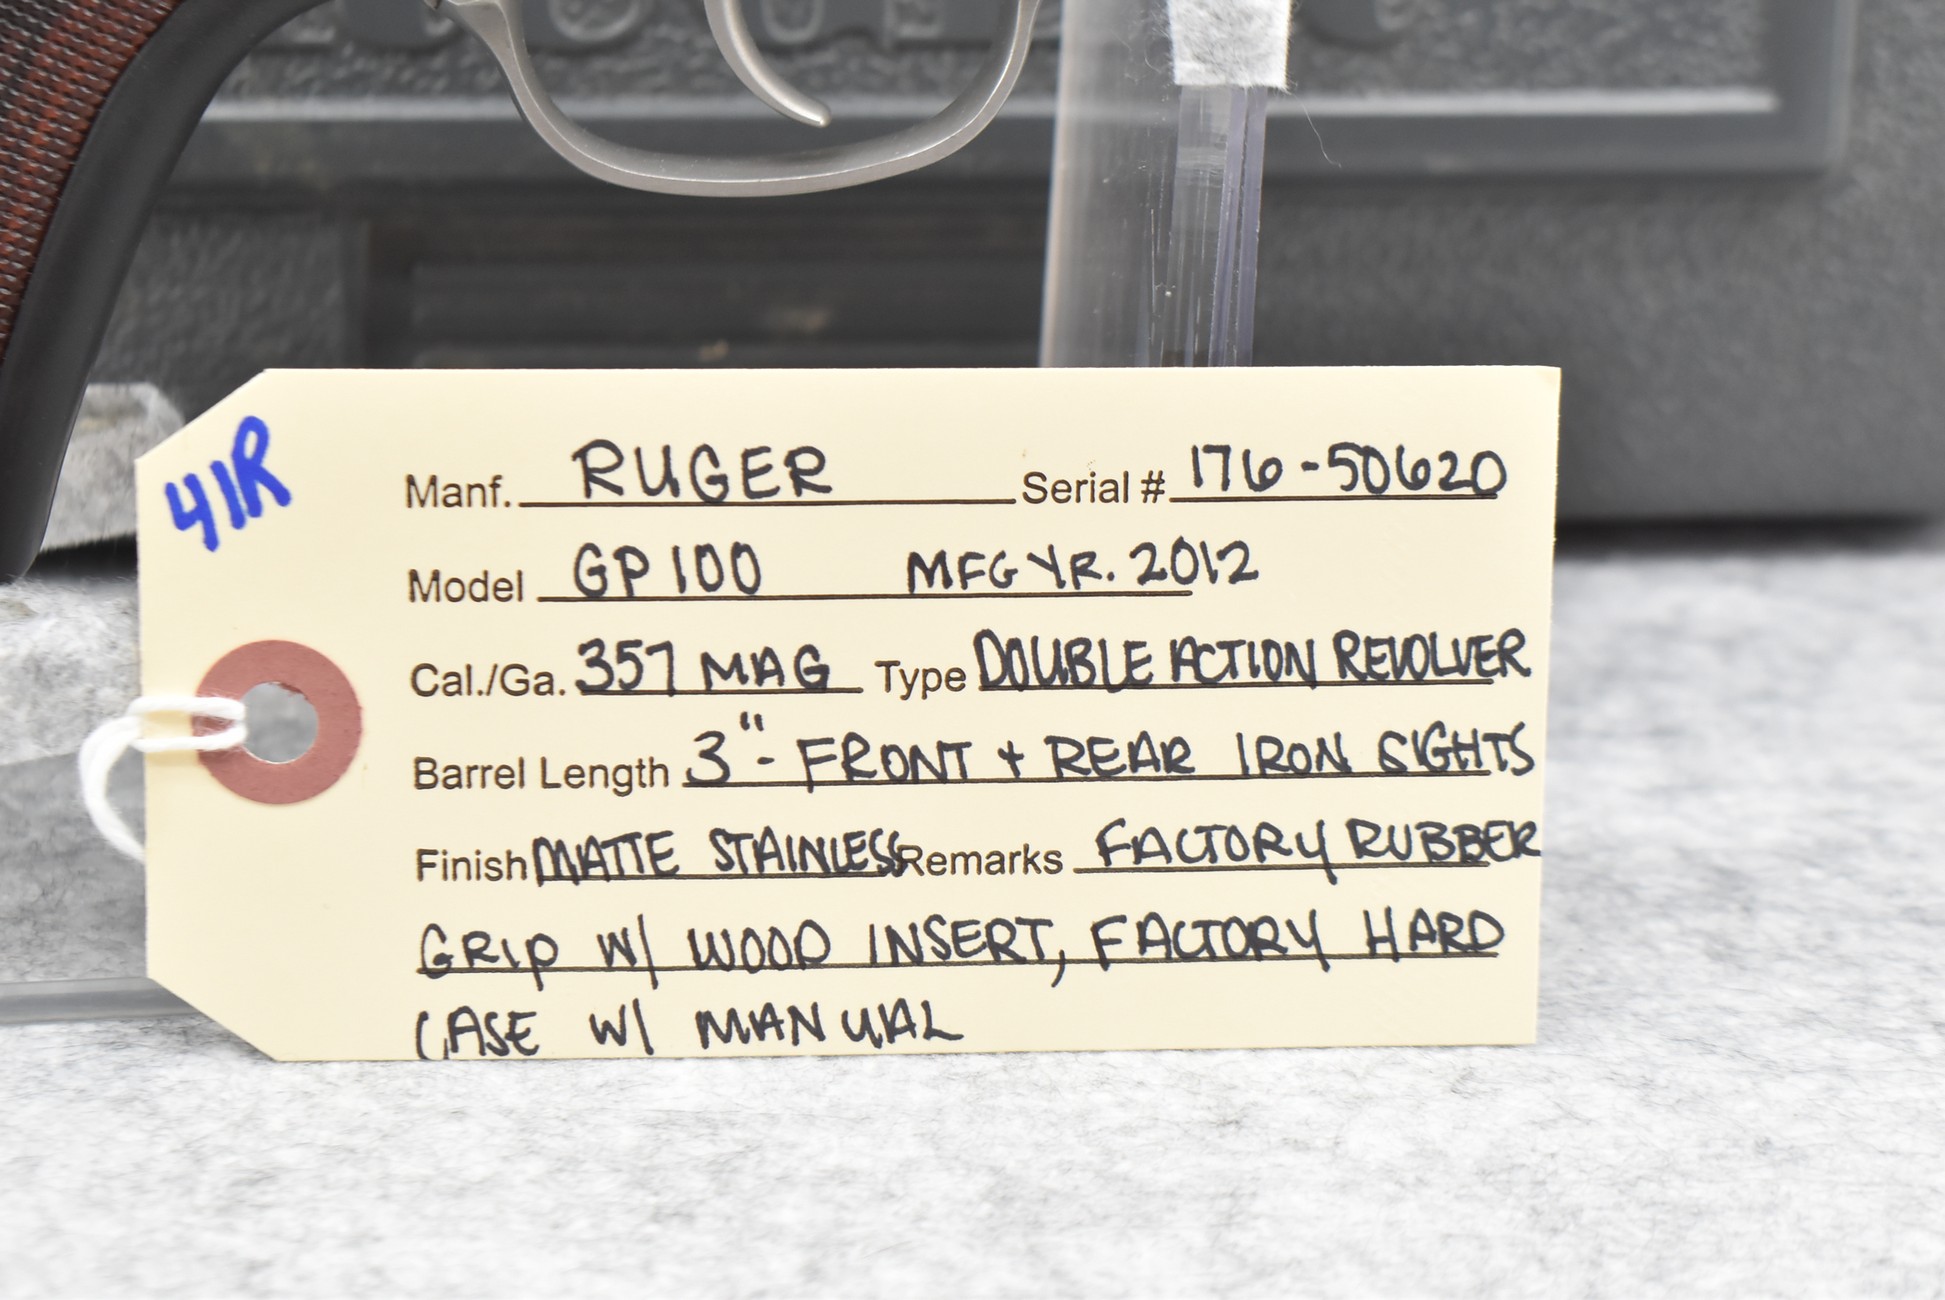 41R
Manf. RUGER Serial # 176-50620
Model GP100 MFG YR. 2012
Cal./Ga. 357 MAG Type DOUBLE ACTION REVOLVER
Barrel Length 3"- FRONT + REAR IRON SIGHTS
Finish MATTE STAINLESS Remarks FACTORY RUBBER
GRIP W/ WOOD INSERT, FACTORY HARD
CASE W/ MANUAL